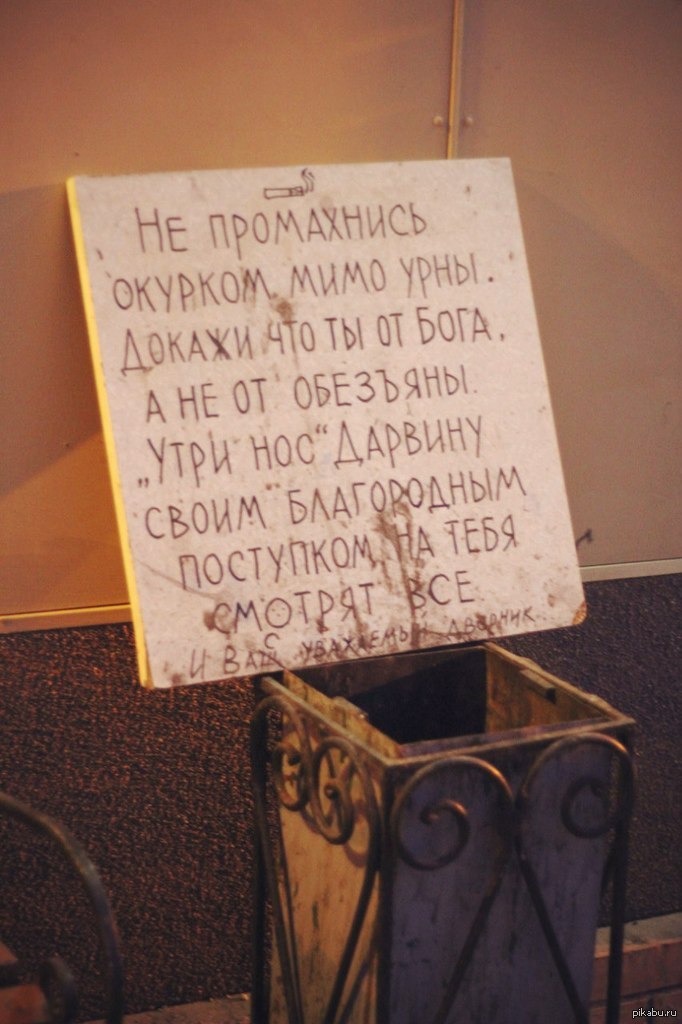 Не промахнись
окурком мимо урны.
Докажи что ты от Бога,
а не от обезъяны.
„Утри нос“ Дарвину
своим благородным
поступком, на тебя
смотрят все
с
и Ваш уважаемый дворник
pikabu.ru